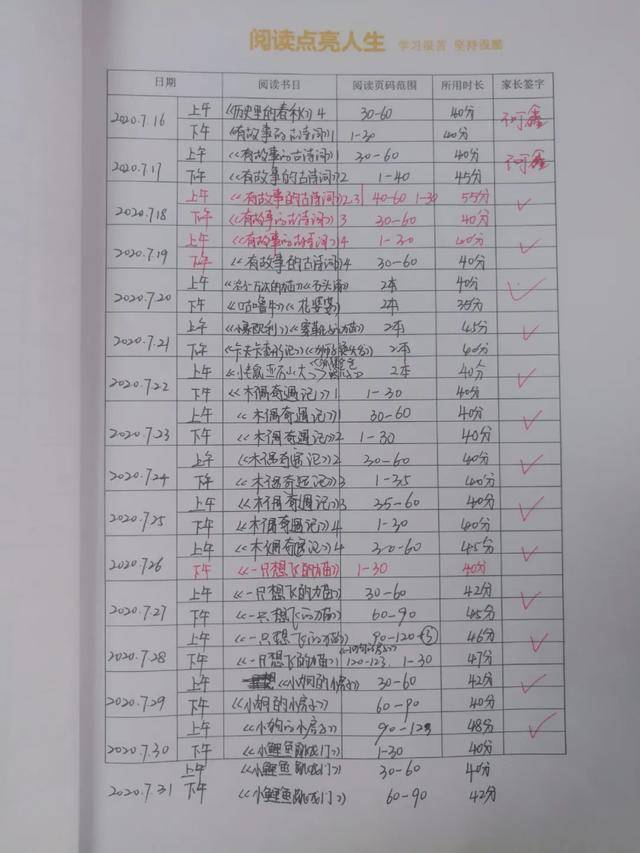 阅读点亮人生 学习报言 坚持提醒
日期 阅读书目 阅读页码范围 所用时长 家长签字
2020.7.16 上午 《历史里的春秋》4 30-60 40分
下午 《有故事的古诗词》1 1-30 40分
2020.7.17 上午 《有故事的古诗词》1 30-60 40分
下午 《有故事的古诗词》2 1-40 45分
2020.7.18 上午 《有故事的古诗词》2.3 40-60 1-30 55分
下午 《有故事的古诗词》3 30-60 40分
2020.7.19 上午 《有故事的古诗词》4 1-30 40分
下午 《有故事的古诗词》4 30-60 40分
2020.7.20 上午 2本 40分
下午 《咕噜牛》《花婆婆》 2本 35分
2020.7.21 上午 2本 45分
下午 2本 40分
2020.7.22 上午 2本 40分
下午 《木偶奇遇记》1 1-30 40分
2020.7.23 上午 《木偶奇遇记》1 30-60 40分
下午 《木偶奇遇记》2 1-30 40分
2020.7.24 上午 《木偶奇遇记》2 30-60 40分
下午 《木偶奇遇记》3 1-35 40分
2020.7.25 上午 《木偶奇遇记》3 35-60 40分
下午 《木偶奇遇记》4 1-30 40分
2020.7.26 上午 《木偶奇遇记》4 30-60 45分
下午 《一只想飞的猫》 1-30 40分
2020.7.27 上午 《一只想飞的猫》 30-60 42分
下午 《一只想飞的猫》 60-90 45分
2020.7.28 上午 《一只想飞的猫》 90-120 46分
下午 《一只想飞的猫》 《小狗的小房子》 120-123 1-30 47分
2020.7.29 上午 《小狗的小房子》 30-60 42分
下午 《小狗的小房子》 60-90 40分
2020.7.30 上午 《小狗的小房子》 90-123 48分
下午 《小鲤鱼跳龙门》 1-30 40分
2020.7.31 上午 《小鲤鱼跳龙门》 30-60 40分
下午 《小鲤鱼跳龙门》 60-90 42分